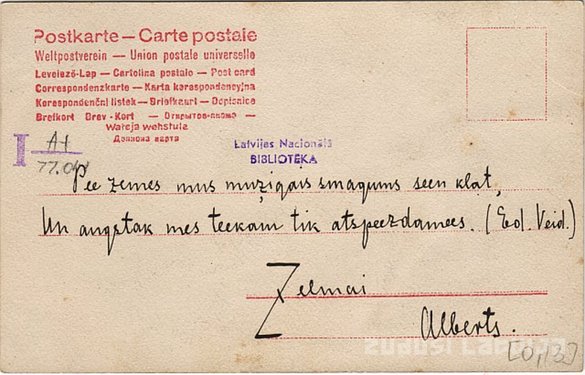 Postkarte — Carte postale
Weltpostverein — Union postale universelle
Levelező-Lap — Cartolina postale — Post card
Correspondenzkarte — Karta korespondencyjna
Korespondenční lístek — Briefkaart — Dopisnice
Brefkort Brev-Kort — Открытое письмо —
Дописна карта
I A1
77.04
Latvijas Nacionālā
BIBLIOTĒKA
Pee zemes mus muzigais smagums seen klat,
Un augstak mes teekam tik atspeezdamees. (Ed. Veid.)
Zelmai
Alberts.
[0,13]